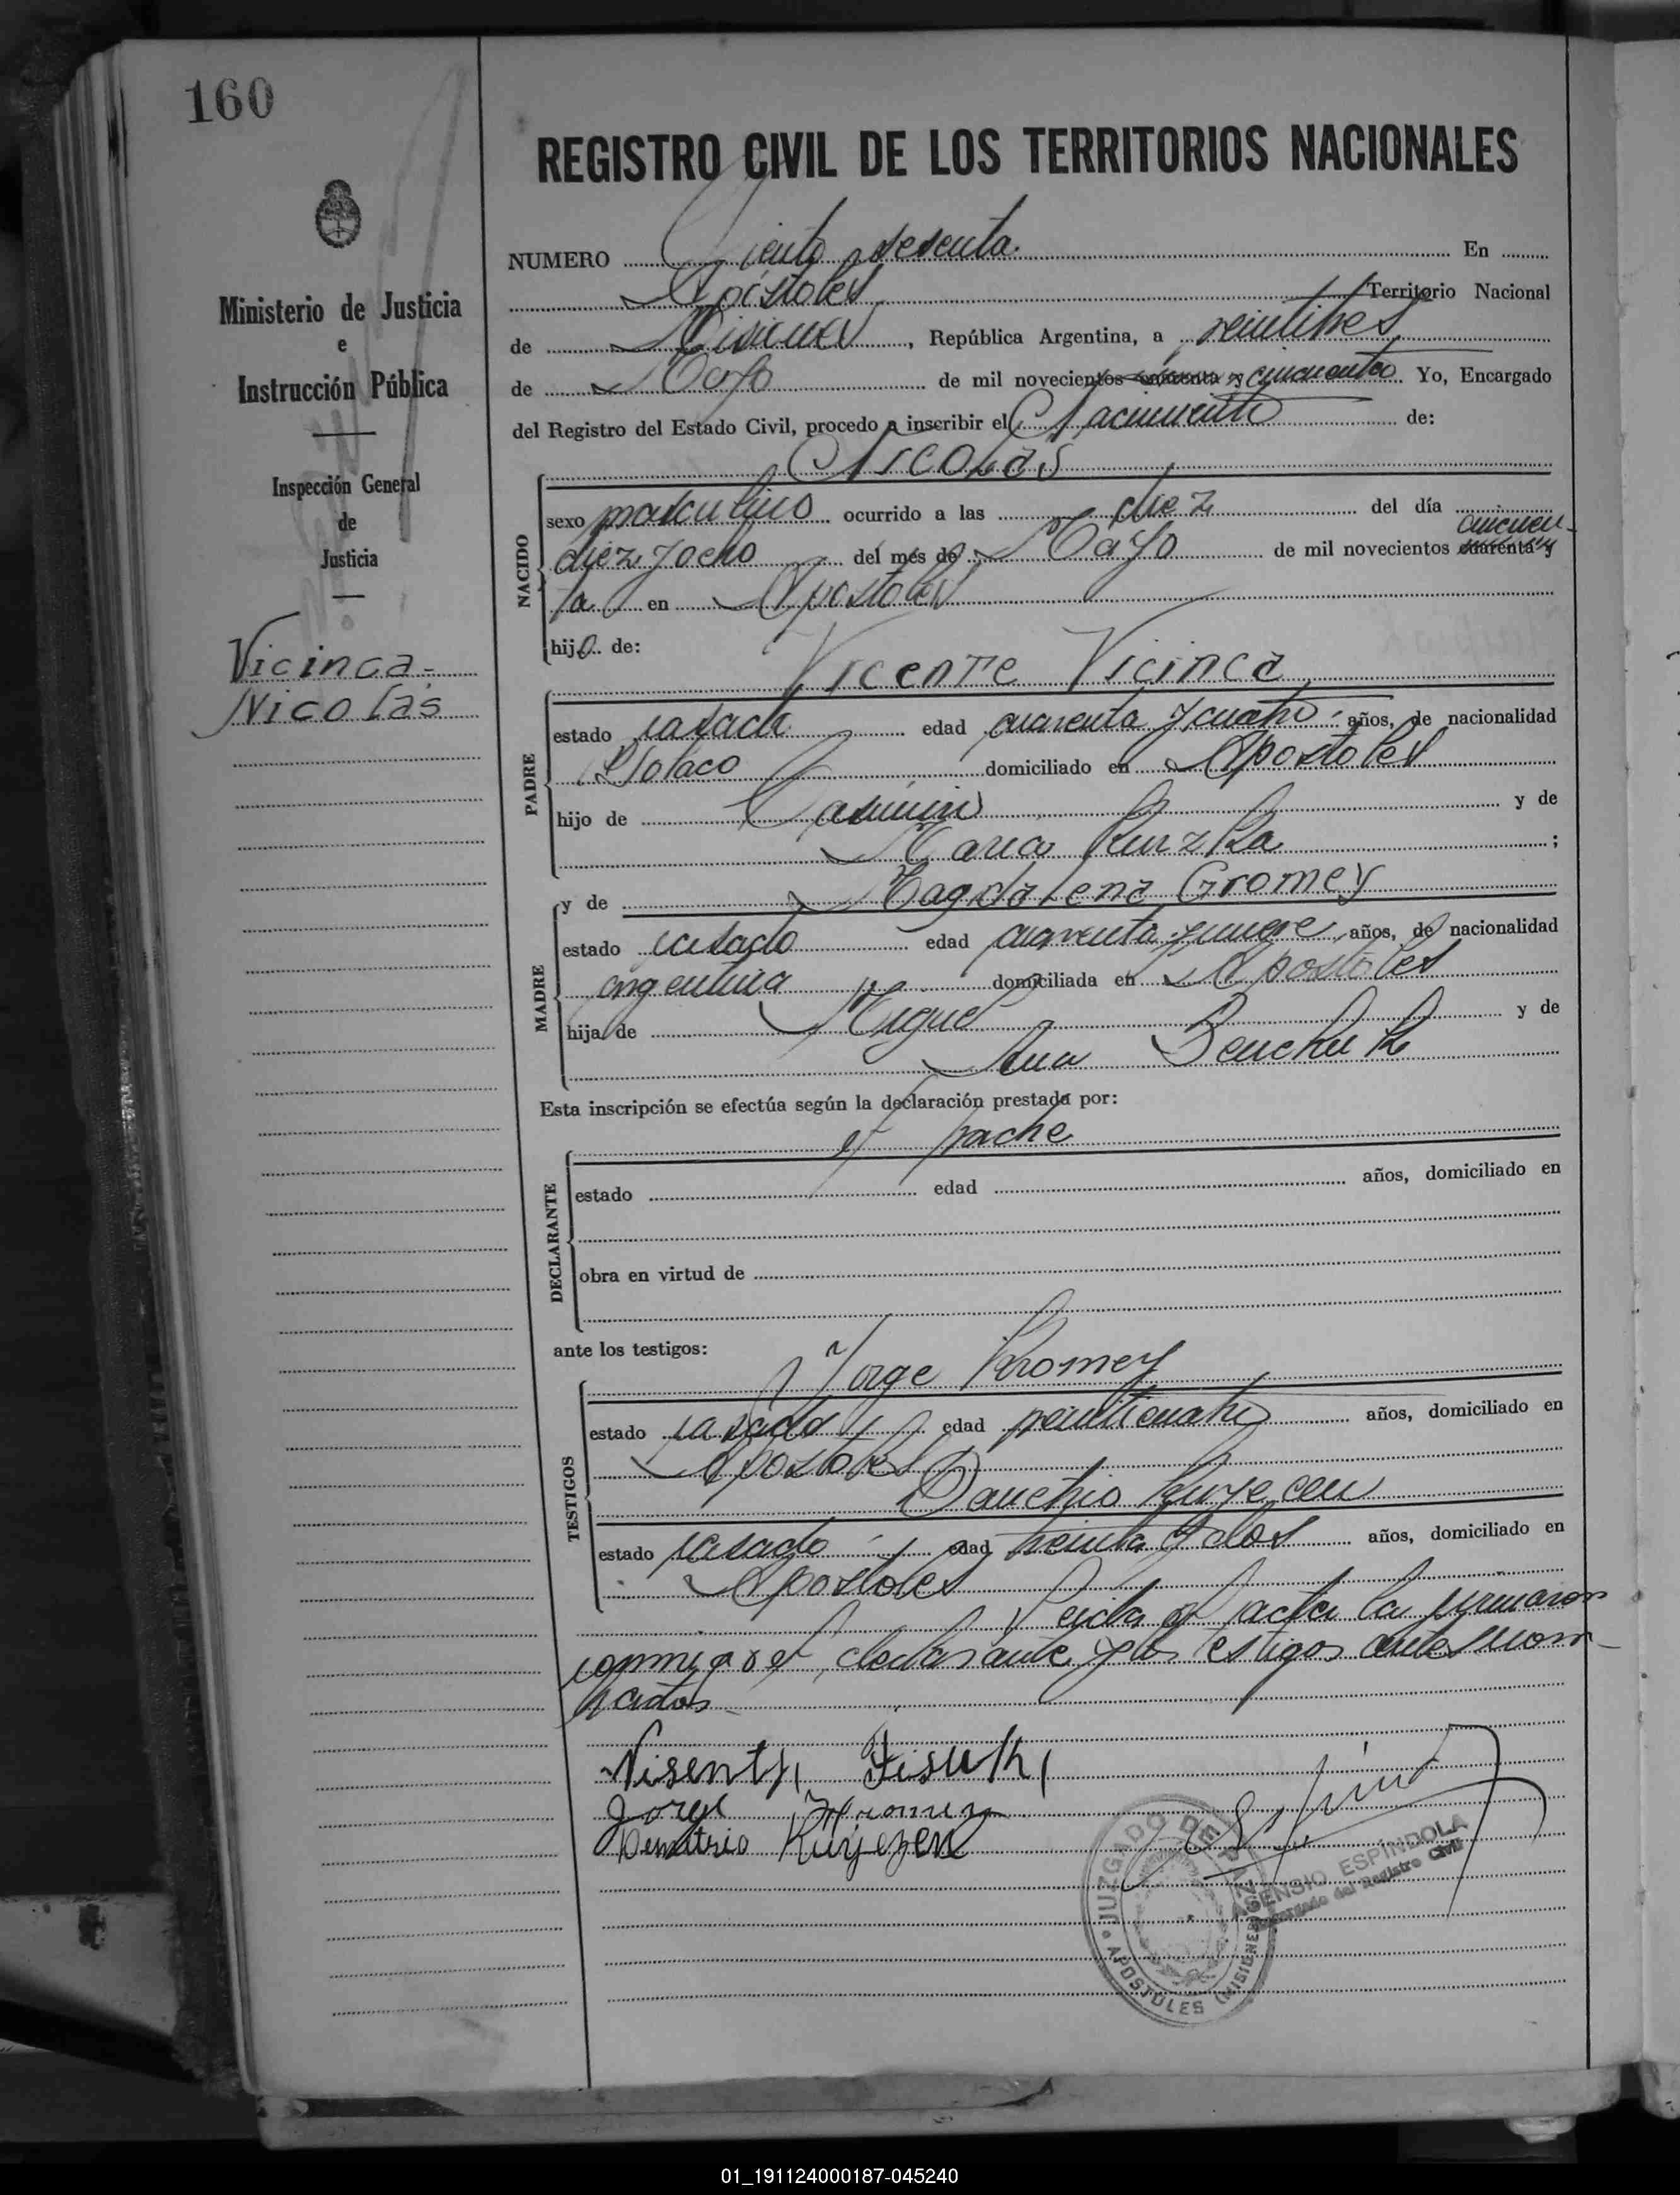 160
REGISTRO CIVIL DE LOS TERRITORIOS NACIONALES
Ministerio de Justicia
e
Instrucción Pública
Inspección General
de
Justicia
Vicinca-
Nicolás
NUMERO Ciento sesenta. En
Apóstoles Territorio Nacional
de Misiones, República Argentina, a veintitres
de Mayo de mil novecientos cuarenta y cincuenta. Yo, Encargado
del Registro del Estado Civil, procedo a inscribir el Nacimiento de:
Nicolás
NACIDO
sexo masculino ocurrido a las diez del día
diez y ocho del mes de Mayo de mil novecientos cuarenta y cincuen-
ta en Apostoles
hijo de:
Vicente Vicinca
PADRE
estado casado edad cuarenta y cuatro años, de nacionalidad
Polaco domiciliado en Apostoles
hijo de Casimiro y de
Maria ;
MADRE
y de Magdalena Gromey
estado casado edad cuarenta y nueve años, de nacionalidad
argentina domiciliada en Apostoles
hija de Miguel y de
Ana
Esta inscripción se efectúa según la declaración prestada por:
el padre
DECLARANTE
estado edad años, domiciliado en
obra en virtud de
ante los testigos:
Jorge Hromey
TESTIGOS
estado casado edad veinticuatro años, domiciliado en
Apostoles
estado casado edad treinta y dos años, domiciliado en
Apostoles
Leida el acta la firmaron
conmigo el declarante y los testigos antes nom-
brados
Jorge
Demetrio
JUZGADO DE PAZ
APOSTOLES (MISIONES)
ASENSIO ESPÍNDOLA
Encargado del Registro Civil
01_191124000187-045240